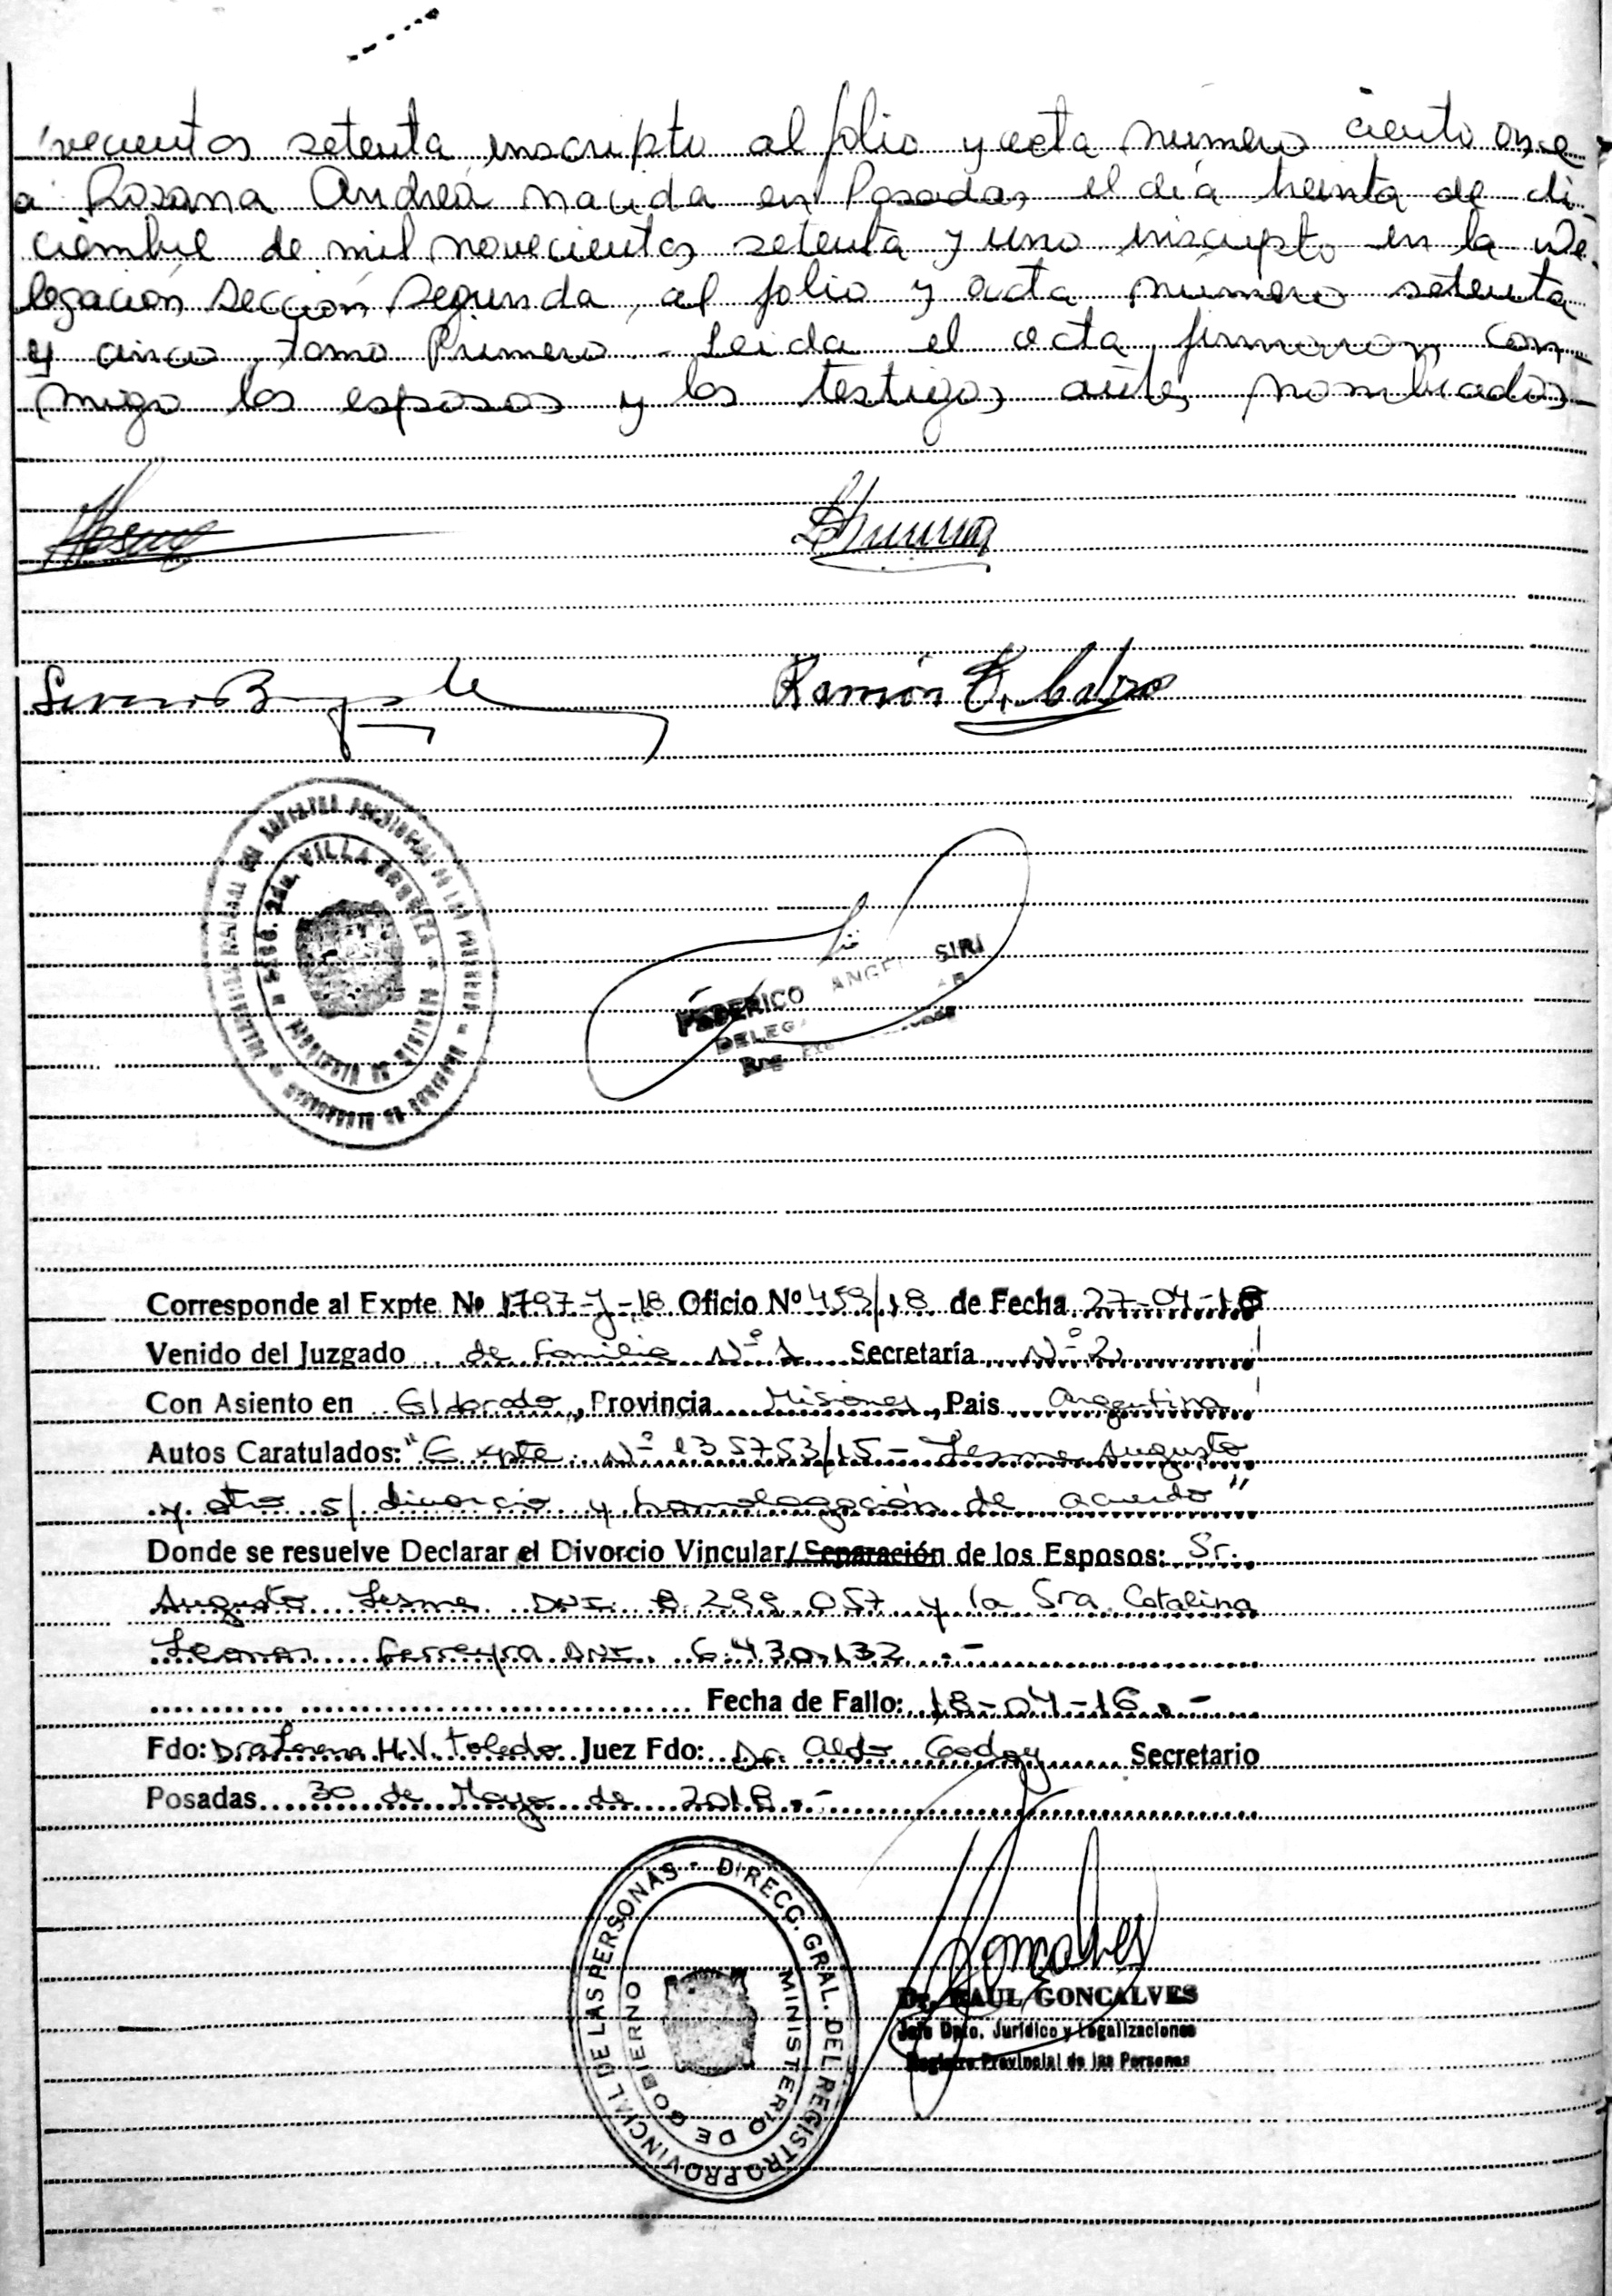 vecientos setenta inscripto al folio y acta número ciento once
a Rosana Andrea nacida en Posadas el día treinta de di-
ciembre de mil novecientos setenta y uno inscripto en la De-
legación Sección Segunda, al folio y acta número setenta
y cinco, tomo Primero. Leida el acta, firmaron con-
migo los esposos y los testigos antes nombrados-
Ramón E.
2da. VILLA
FEDERICO ANGEL SIRI
DELEG
Corresponde al Expte Nº 1797-J-18 Oficio Nº 459/18 de Fecha 27-04-18
Venido del Juzgado de Familia Nº 1 Secretaría Nº 2
Con Asiento en Eldorado, Provincia Misiones, Pais Argentina
Autos Caratulados: "Expte. Nº 135753/15- Lesme Augusto
y otro s/ divorcio y homologación de acuerdo"
Donde se resuelve Declarar el Divorcio Vincular/Separación de los Esposos: Sr.
Augusto Lesme DNI 8.299.057 y la Sra Catalina
Leonor Ferreyra DNI. 6.430.132.-
Fecha de Fallo: 18-04-16.-
Fdo: Dra H.V. Toledo Juez Fdo: Dr. Aldo Godoy Secretario
Posadas 30 de Mayo de 2018.-
DIRECC. GRAL. DEL REGISTRO PROVINCIAL DE LAS PERSONAS -
MINISTERIO DE GOBIERNO
Goncalves
Dr. RAUL GONCALVES
Jefe Dpto. Jurídico y Legalizaciones
Registro Provincial de las Personas